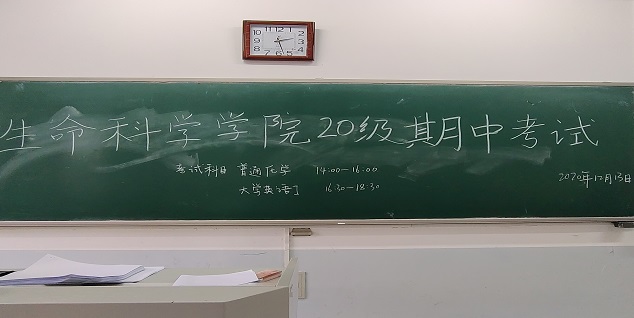 12
11
1
10
2
9
3
8
4
7
6
5
生命科学学院20级期中考试
考试科目 普通化学 14:00-16:00
大学英语 16:30-18:30
2020年12月13日